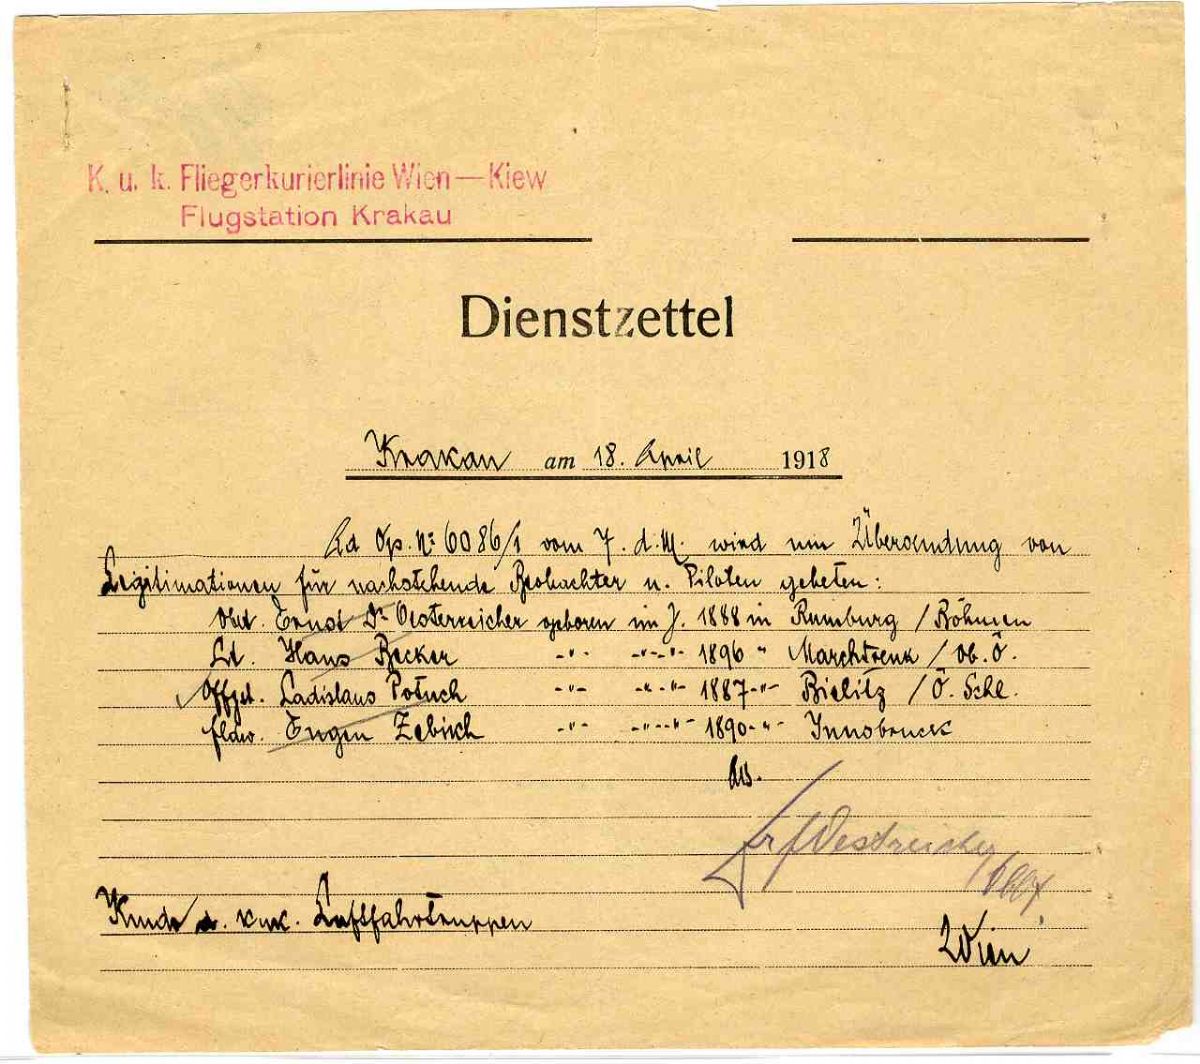 K. u. k. Fliegerkurierlinie Wien—Kiew
Flugstation Krakau
Dienstzettel
Krakau am 18. April 1918
Ad Op. Nº 6086/1 vom 7. d. M. wird um Übersendung von
Legitimationen für nachstehende Beobachter u. Piloten gebeten:
Oblt. Ernst Dr Oesterreicher geboren im J. 1888 in Rumburg / Böhmen
Lt. Hans Becker -"- -"-"- 1896 " Marchtrenk / Ob. Ö.
Offzst. Ladislaus Potuch -"- -"-"- 1887 -"- Bielitz / Ö. Schl.
Eugen -"- -"-"- 1890 -"- Innsbruck
Kmdo d. k.u.k. Luftfahrtruppen
Wien